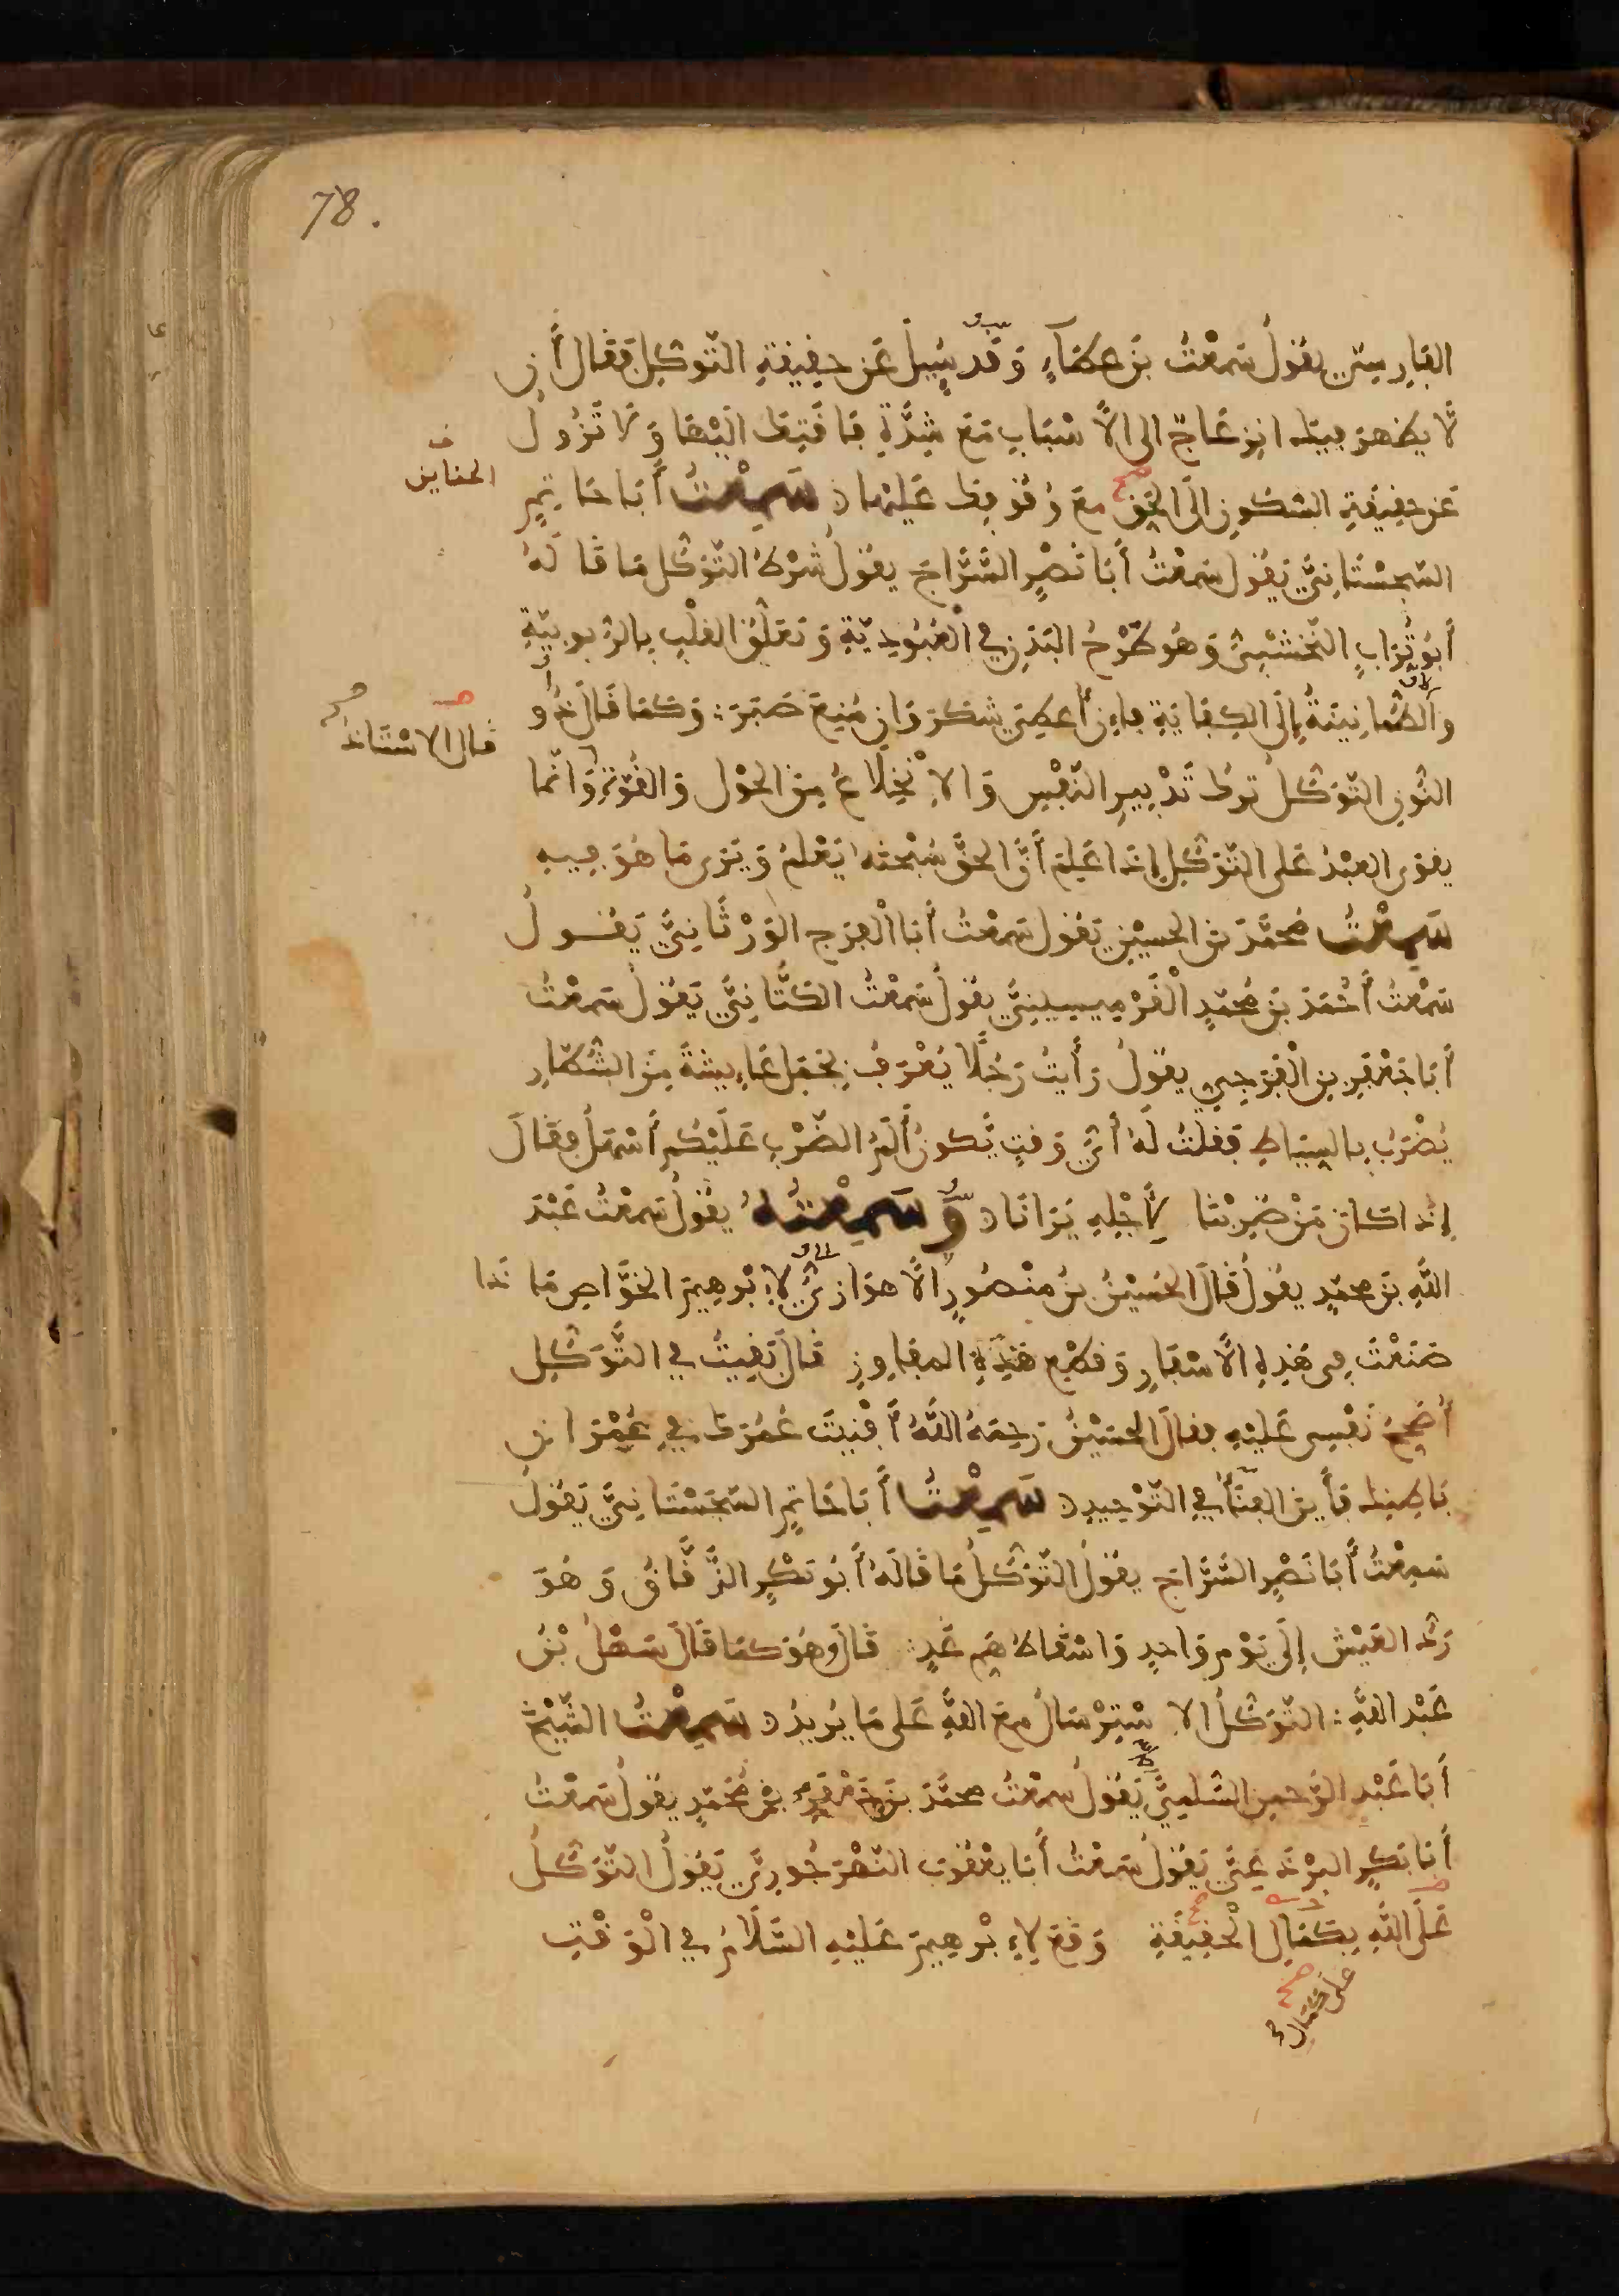 78.
الفارسي يقول سمعت بن عطاء وقد سُيل عن حقيقة التوكل فقال أن
لا يظهر فيك انزعاج الى الأسباب مع شدّة فاقتك اليها ولا تزول
الحقايق
عن حقيقة السكون الى الحق مع وقوفك عليها سَمِعْتُ أبا حاتم
السجستاني يقول سمعت أبا نصر السراج يقول شرط التوكل ما قاله
أبو تراب النخشبي وهو طرح البدن في العبودية وتعلق القلب بالربوبية
والطمانينة إلى الكفاية فإن أعطي شكر وإن منع صبر وكما قال ذو
قال الاستاذ
النون التوكل ترك تدبير النفس والانخلاع من الحول والقوة وانما
يقوى العبد على التوكل إذا علم أن الحق سبحنه يعلم ويرى ما هو فيه
سَمِعْتُ محمد بن الحسين يقول سمعت أبا الفرج الورثاني يقول
سمعت أحمد بن محمد القرميسيني يقول سمعت الكتاني يقول سمعت
أبا جعفر بن الفرجي يقول رأيت رجلا يعرف بجمل عايشة من الشطار
يضرب بالسياط فقلت له أي وقت يكون ألم الضرب عليكم أسهل فقال
إذا كان من ضربنا لأجله يرانا وَسَمِعْتُهُ يقول سمعت عبد
الله بن محمد يقول قال الحسين بن منصور الأهوازي لإبرهيم الخواص ماذا
صنعت في هذه الأسفار وقطع هذه المفاوز قال بقيت في التوكل
أصحح نفسي عليه فقال الحسين رحمه الله أفنيت عمرك في عمران
باطنك فأين الفناء في التوحيد سَمِعْتُ أبا حاتم السجستاني يقول
سمعت أبا نصر السراج يقول التوكل ما قاله أبو بكر الزقاق وهو
رد العيش إلى يوم واحد واسقاط هم غد قال وهو كما قال سهل بن
عبد الله التوكل الاسترسال مع الله على ما يريد سَمِعْتُ الشيخ
أبا عبد الرحمن السلمي يقول سمعت محمد بن جعفر بن محمد يقول سمعت
أبا بكر البرذعي يقول سمعت أبا يعقوب النهرجوري يقول التوكل
على الله بكمال الحقيقة وقع لإبرهيم عليه السلام في الوقت
على كمال